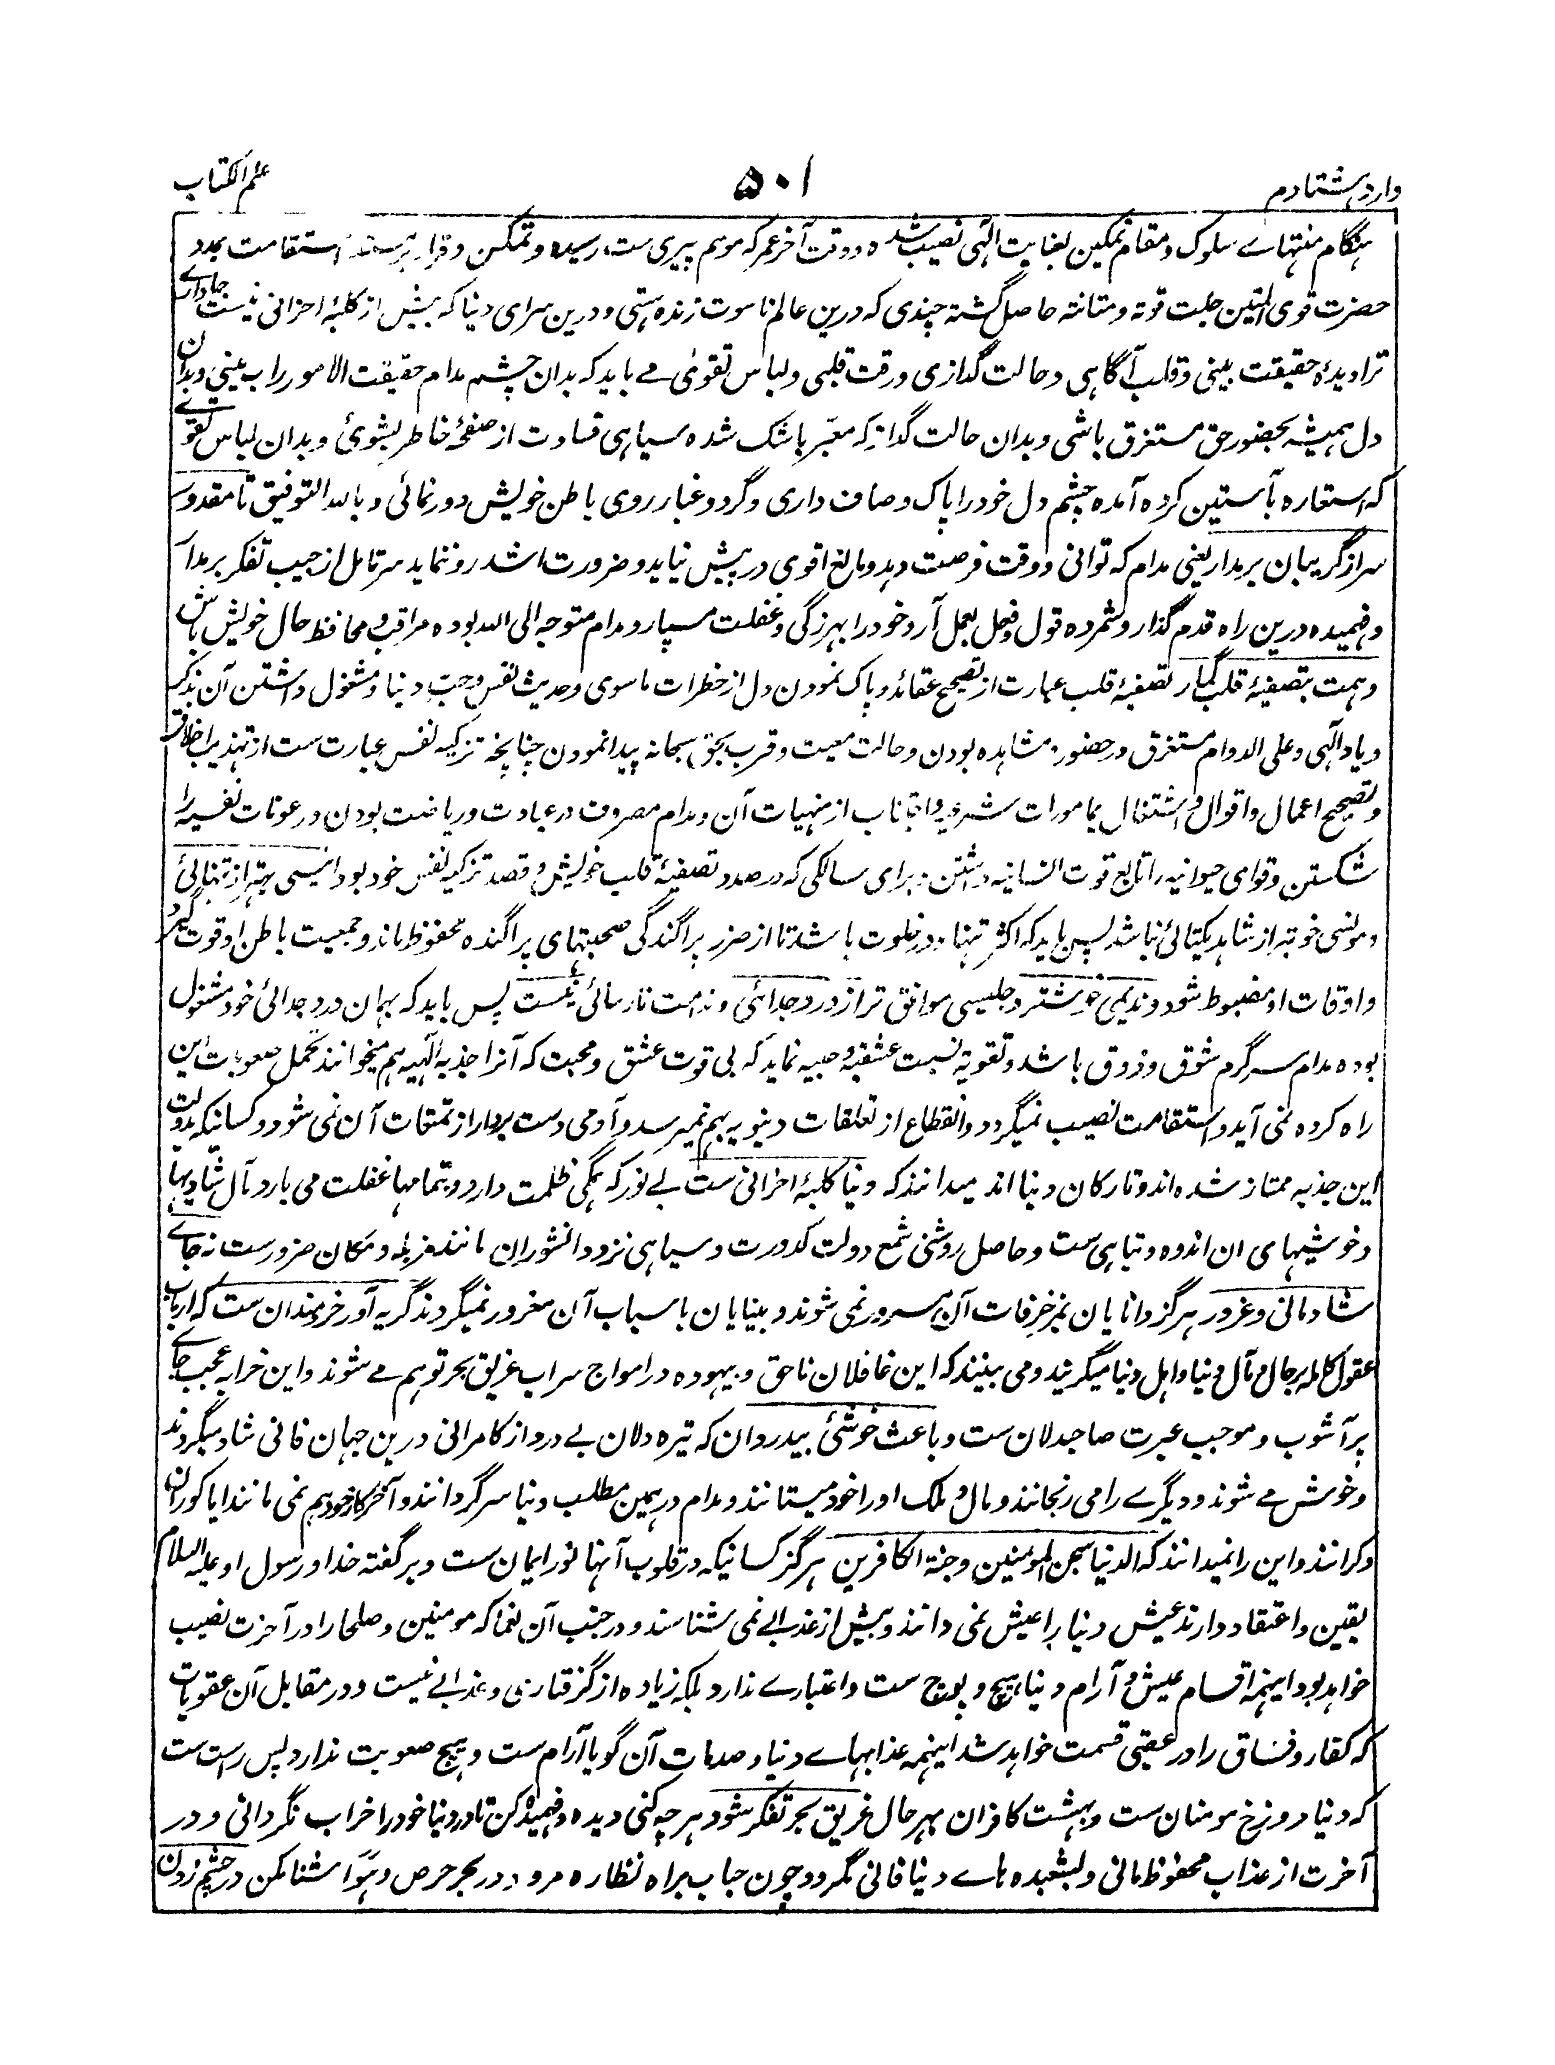 وارد هشتادم
۵۰۱
علم الکتاب
هنگام منتهاے سلوک و مقام تمکین بعنایت الٰهی نصیب شده و وقت آخر عمر که موسم پیری ست رسیده و تمکن و قرار بر مسند استقامت بمدد
حضرت قوی المتین جلت قوته و متانته حاصل گشته چندی که درین عالم ناسوت زنده هستی و درین سرای دنیا که بیش از کلبهٔ احزانی نیست جا داری
ترا دیدهٔ حقیقت بینی و قلب آگاهی و حالت گدازی و رقت قلبی و لباس تقوی مے باید که بدان چشم مدام حقیقت الامور را ببینی و بدان
دل همیشه بحضور حق مستغرق باشی و بدان حالت گداز که معبّر باشک شده سیاهی قساوت از صفحهٔ خاطر بشوئی و بدان لباس تقوے
که استعاره بآستین کرده آمده چشم دل خود را پاک و صاف داری و گرد و غبار روی باطن خویش دور نمائی و بالله التوفیق تا مقدور
سر از گریبان برمدار یعنی مدام که توانی و وقت فرصت دهد و مانع اقوی در پیش نیاید و ضرورت اشد رو ننماید سر تامل از جیب تفکر برمدار
و فهمیده درین راه قدم گذار و شمرده قول و فعل بعمل آر و خود را بهرزگی و غفلت مسپار و مدام متوجه الی الله بوده مراقب و محافظ حال خویش باش
و همت بتصفیهٔ قلب گمار تصفیهٔ قلب عبارت از تصحیح عقائد و پاک نمودن دل از خطرات ماسوی و حدیث نفس و حب دنیا و مشغول داشتن آن بذکر
و یاد الٰهی و علی الدوام مستغرق در حضور و مشاهده بودن و حالت معیت و قرب بحق سبحانه پیدا نمودن چنانچه تزکیه نفس عبارت ست از تهذیب اخلاق
و تصحیح اعمال و اقوال و اشتغال بمامورات شرعیه و اجتناب از منهیات آن و مدام مصروف در عبادت و ریاضت بودن و رعونات نفسیه را
شکستن و قوای حیوانیه را تابع قوت انسانیه داشتن و برای سالکی که درصدد تصفیهٔ قلب خویش و قصد تزکیه نفس خود بود انیسی بهتر از تنهائی
و مونسی خوبتر از شاهد یکتائی نباشد پس باید که اکثر تنها و در خلوت باشد تا از ضرر پراگندگی صحبتهای پراگنده محفوظ ماند و جمعیت باطن او قوت گیرد
و اوقات او مضبوط شود و ندیمی خوشتر و جلیسی موافق تر از درد جدائی و ندامت نارسائی نیست پس باید که بهمان درد جدائی خود مشغول
بوده مدام سرگرم شوق و ذوق باشد و تقویهٔ نسبت عشقیه و حبیه نماید که بی قوت عشق و محبت که آنرا جذبه الٰهیه هم میخوانند تحمل صعوبات این
راه کرده نمی آید و استقامت نصیب نمیگردد و انقطاع از تعلقات دنیویه بهم نمیرسد و آدمی دست بردار از تمتعات آن نمی شود و کسانیکه بدولت
این جذبه ممتاز شده اند و تارکان دنیا اند میدانند که دنیا کلبهٔ احزانی ست بے نور که همگی ظلمت دارد و بتمامها غفلت می بارد و مآل شادیها
و خوشیهای آن اندوه و تباهی ست و حاصل روشنی شمع دولت کدورت و سیاهی نزد دانشوران مانند مزبله و مکان ضرورست نه جاے
شادمانی و غرور هرگز دانایان بمزخرفات آن مسرور نمی شوند و بینایان باسباب آن مغرور نمیگردند گریه آور خردمندان ست که ارباب
عقول کامله بر حال و مآل دنیا و اهل دنیا میگریند و می بینند که این غافلان ناحق و بیهوده در امواج سراب غریق بحر توهم مے شوند و این خرابه عجب جاے
پر آشوب و موجب عبرت صاحبدلان ست و باعث خوشی بیدردان که تیره دلان بے درد از کامرانی درین جهان فانی شاد میگردند
و خوش مے شوند و دیگرے را می رنجانند و مال و ملک او را خود میستانند و مدام در همین مطلب دنیا سرگردانند و آخر کار خود هم نمی مانند ایا کوران
و کرانند و این را نمیدانند که الدنیا سجن المومنین و جنة الکافرین هرگز کسانیکه در قلوب آنها نور ایمان ست و بر گفته خدا و رسول او علیه السلام
یقین و اعتقاد دارند عیش دنیا را عیش نمی دانند و بیش از عذابے نمی شناسند و در جنب آن نعما که مومنین و صلحا را در آخرت نصیب
خواهد بود اینهمه اقسام عیش و آرام دنیا هیچ و پوچ ست و اعتبارے ندارد بلکه زیاده از گرفتاری و عذابے نیست و در مقابل آن عقوبات
که کفار و فساق را در عقبی قسمت خواهد شد اینهمه عذابهاے دنیا و صدمات آن گویا آرام ست و هیچ صعوبت ندارد پس راست ست
که دنیا دوزخ مومنان ست و بهشت کافران بهر حال غریق بحر تفکر شو و هر چه کنی دیده و فهمیده کن تا در دنیا خود را خراب نگردانی و در
آخرت از عذاب محفوظ مانی و بشعبده هاے دنیا فانی مگرد و چون حباب براه نظاره مرو و در بحر حرص و هوا شنا مکن در چشم زدن